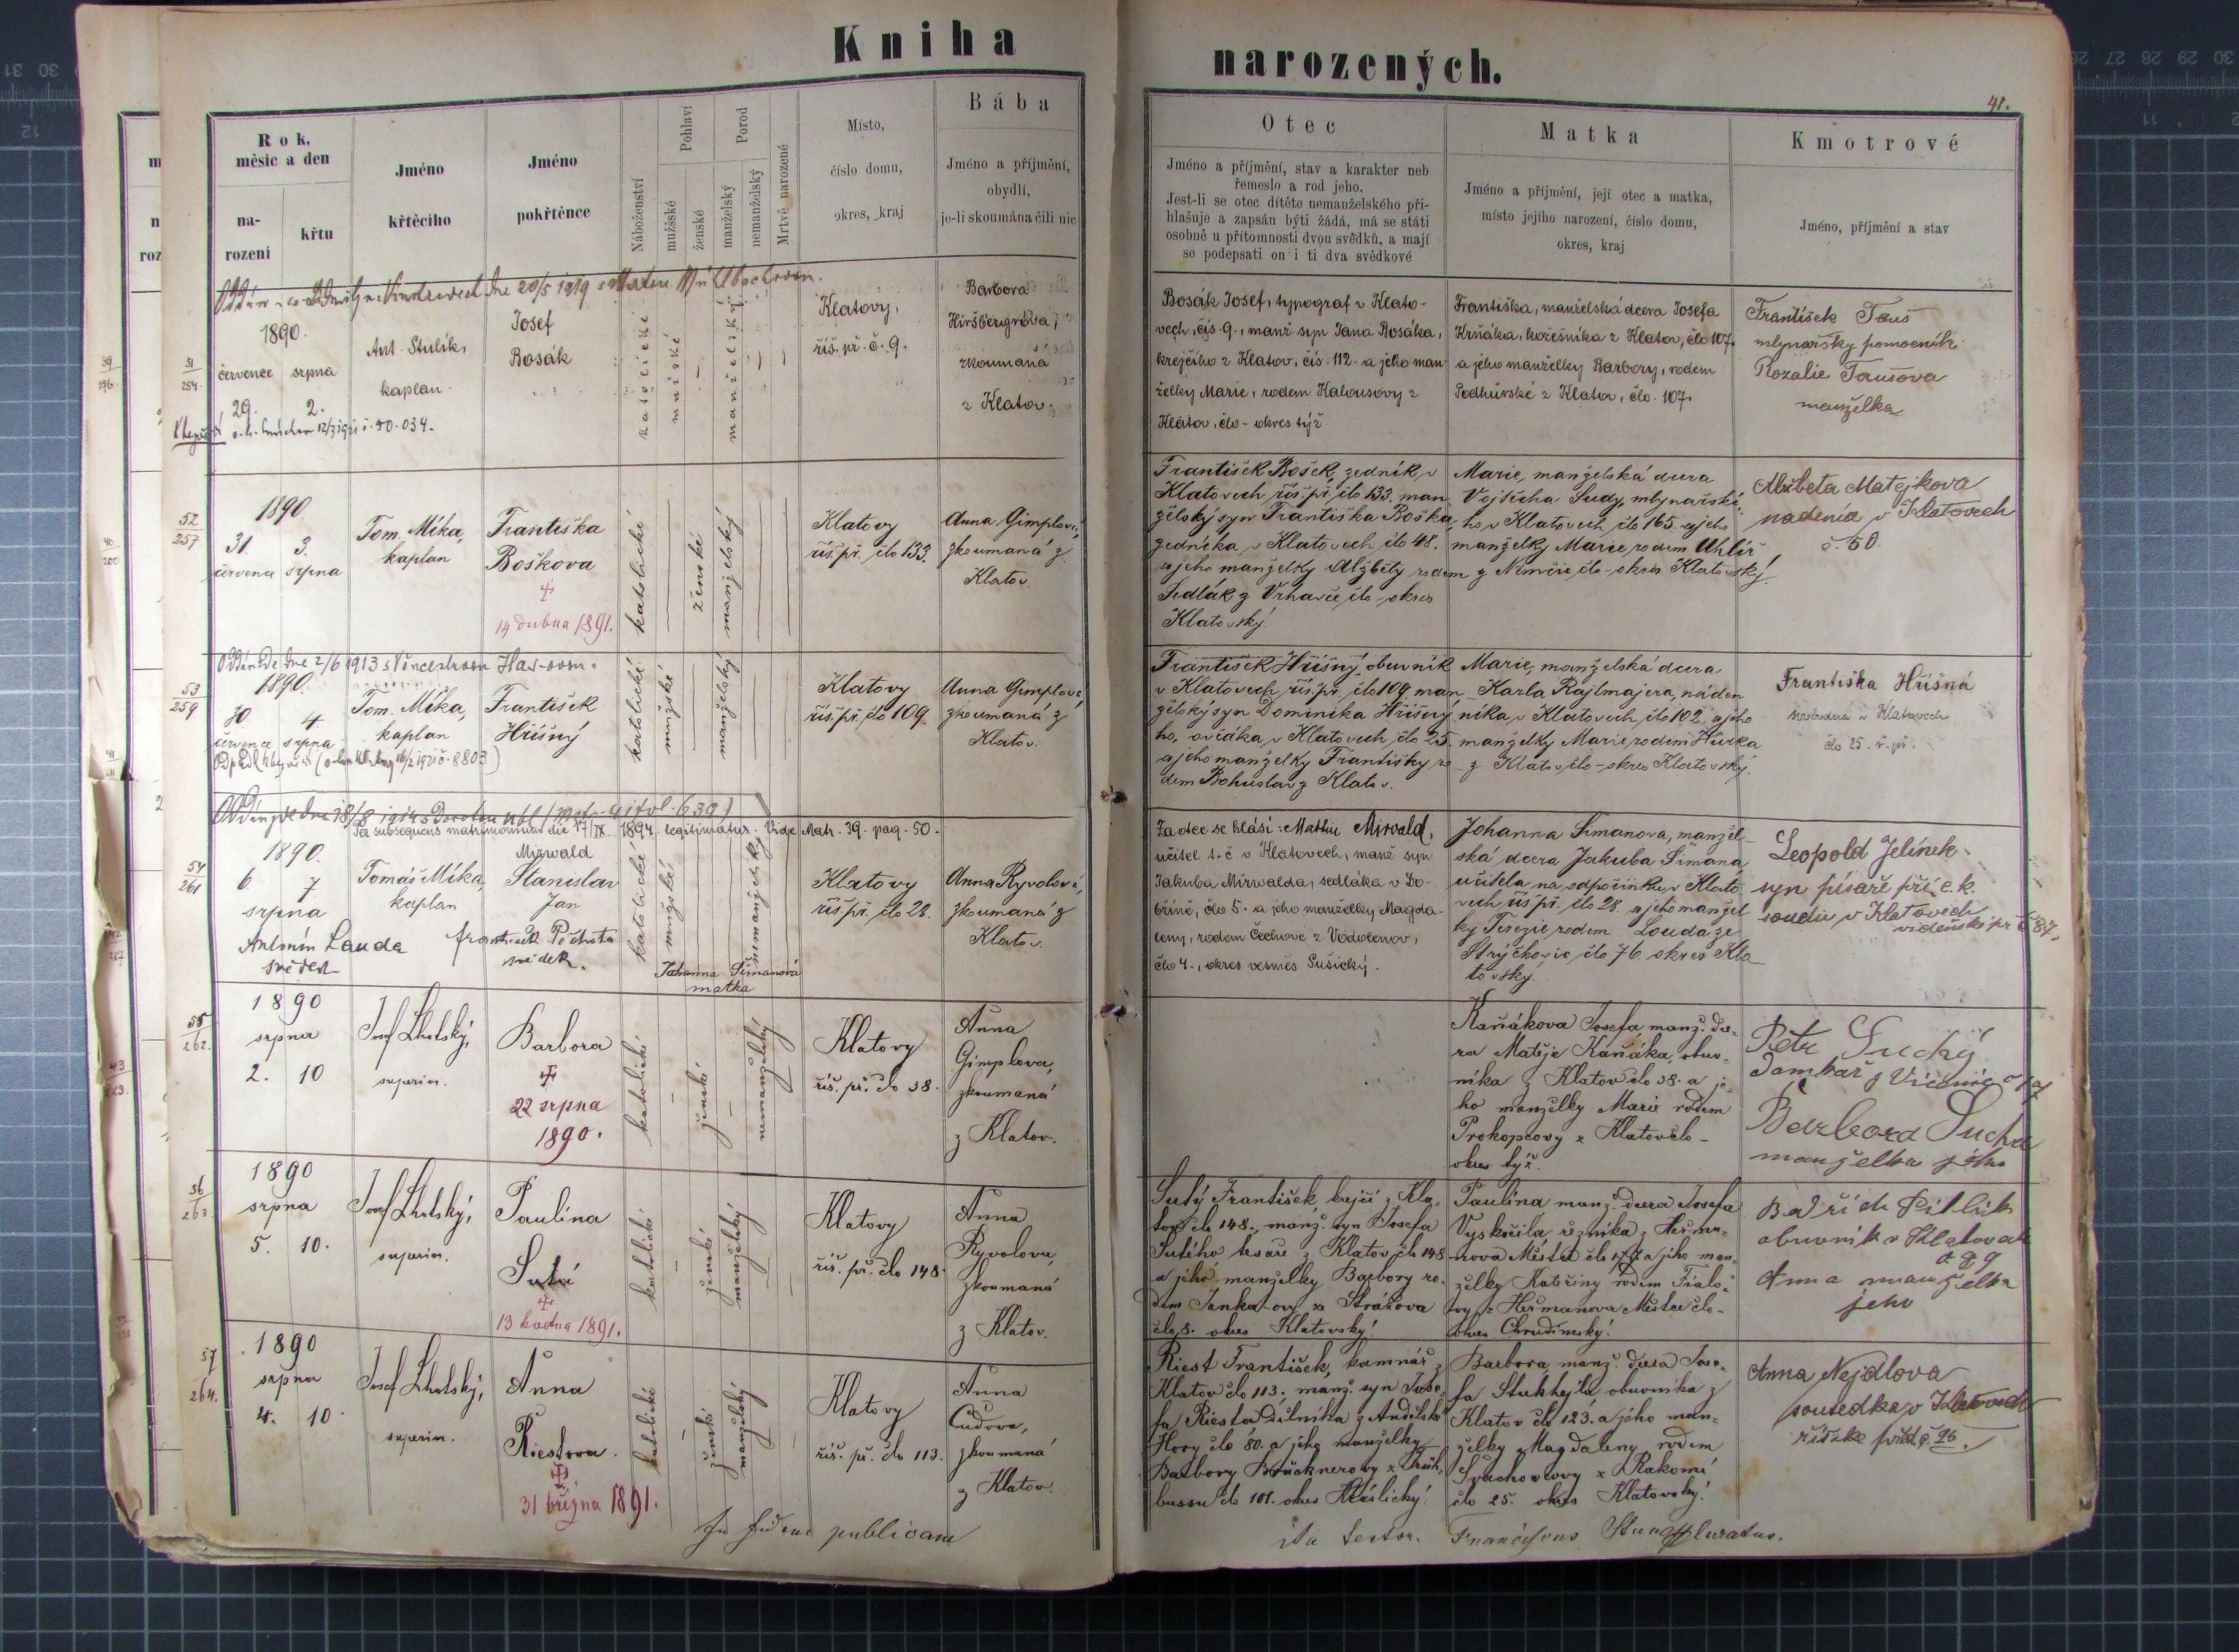 Kniha
narozených.
41.
Rok,
měsíc a den
na-
rození
křtu
Jméno
křtěcího
Jméno
pokřtěnce
Náboženství
Pohlaví
mužské
ženské
Porod
manželský
nemanželský
Mrtvě narozené
Místo,
číslo domu,
okres, kraj
Bába
Jméno a příjmění,
obydlí,
je-li skoumána čili nic
Otec
Jméno a příjmění, stav a karakter neb
řemeslo a rod jeho.
Jest-li se otec dítěte nemanželského při-
hlašuje a zapsán býti žádá, má se státi
osobně u přítomnosti dvou svědků, a mají
se podepsati on i ti dva svědkové
Matka
Jméno a příjmění, její otec a matka,
místo jejího narození, číslo domu,
okres, kraj
Kmotrové
Jméno, příjmění a stav
dne 20/5 1919
51
254.
1890.
července srpna
29. 2.
Ant. Stulík,
kaplan.
Josef
Bosák
katolické
mužské
manželský
Klatovy,
říš. př. č. 9.
Barbora
Hiršbergrova,
zkoumaná
z Klatov.
Bosák Josef, typograf v Klato-
vech, čís. 9., manž. syn Jana Bosáka,
krejčího z Klatov, čís. 112. a jeho man-
želky Marie, rodem Kalousovy z
Klatov, člo - okres týž.
Františka, manželská dcera Josefa
Krňáka, kožešníka z Klatov, člo 107.
a jeho manželky Barbory, rodem
Podhůrské z Klatov, člo. 107.
František Tauš
mlynářský pomocník
Rozalie Taušova
manželka
52
257.
1890
31. 3.
července srpna
Tom. Míka,
kaplan
Františka
Boškova
14 dubna 1891.
katolické
ženské
manželský
Klatovy
říš. př. člo 133.
Anna Gimplová,
zkoumaná z
Klatov.
František Bošek, zedník v
Klatovech říš. př. člo 133. man
želský syn Františka Boška,
zedníka v Klatovech člo 48.
a jeho manželky Alžběty rodem
Sedlák z Vrhavče člo - okres
Klatovský.
Marie, manželská dcera
Vojtěcha Sudy, mlynářské-
ho v Klatovech člo 165. a jeho
manželky Marie rodem Uhlíř
z Němčic člo - okres Klatovský.
Alžbeta Matějkova
nadenia v Klatovech
č. 50.
53
259
dne 2/6 1913
1890.
30 4.
července srpna
Tom. Míka,
kaplan
František
Hříšný
katolické
mužské
manželský
Klatovy
říš. př. člo 109.
Anna Gimplová,
zkoumaná z
Klatov.
František Hříšný, obuvník
v Klatovech, říš. př. člo 109. man
želský syn Dominika Hříšný
ho, ovčáka v Klatovech člo 25.
a jeho manželky Františky ro-
dem Bohuslav z Klatov.
Marie, manželská dcera
Karla Rajtmajera, náden
níka v Klatovech člo 102. a jeho
manželky Marie rodem Hůrka
z Klatov člo - okres Klatovský.
Františka Hříšná
svobodná v Klatovech
člo 25. ř. př.
54
261
Per subsequens matrimonium die 17/IX. 1894. legitimatus. Vide Matr. 39. pag. 50.
1890.
6 7
srpna
Tomáš Míka,
kaplan
Mirwald
Stanislav
Jan
katolické
mužské
nemanželský
Klatovy
říš. př. člo 28.
Anna Ryvolová,
zkoumaná z
Klatov.
Antonín Lauda
svědek
František Pěchota
svědek.
Johanna Šimanová
matka
Za otce se hlásí: Mathie Mirwald,
učitel t. č. v Klatovech, manž. syn
Jakuba Mirwalda, sedláka v Do-
bříně, čLo 5. a jeho manželky Magda-
leny, rodem Čechové z Vodolenov,
čLo 4., okres vesměs Sušický.
Johanna Šimanova, manžel-
ská dcera Jakuba Šimana
učitela na odpočinku v Klato-
vech říš. př. čLo 28. a jeho manžel
ky Terezie rodem Louda ze
Strýčkovic čLo 76. okres Kla-
tovský.
Leopold Jelínek.
syn písaře při c. k.
soudu v Klatovech
vídeňské př. č 87.
55
262.
1890
srpna
2. 10
Josef Lhotský,
superior.
Barbora
22 srpna
1890.
katolické
ženské
nemanželský
Klatovy
říš. př. čLo 38.
Anna
Gimplova,
zkoumaná
z Klatov.
Kaňákova Josefa, manž. dce-
ra Matěje Kaňáka, obuv-
níka z Klatov čLo 38. a je-
ho manželky Marie rodem
Prokopcovy z Klatov čLo -
okres týž.
Petr Suchý
Barbora Sucha
manželka jeho
56
263.
1890
srpna
5. 10.
Josef Lhotský,
superior.
Paulína
Sutá
13 května 1891.
katolické
ženské
manželský
Klatovy
říš. př. čLo 148
Anna
Ryvolova,
zkoumaná
z Klatov.
Sutý František, krejčí z Kla-
tov čLo 148., manž. syn Josefa
Sutého, tesaře z Klatov čLo 148
a jeho manželky Barbory ro-
dem Janka-ovy ze Strážova
čLo 8. okres Klatovský.
Paulína manž. dcera Josefa
Vyskočila, řezníka z Heřma-
nova Městce čLo 177 a jeho man-
želky Kateřiny rodem Fialo-
vy z Heřmanova Městce čLo -
okres Chrudimský.
obuvník v Klatovech
Anna manželka
jeho
57
264.
1890
srpna
4. 10
Josef Lhotský,
superior.
Anna
Riestova.
31 března 1891.
katolické
ženské
manželský
Klatovy
říš. př. čLo 113.
Anna
Čudova,
zkoumaná
z Klatov.
Riest František, kamnář z
Klatov čLo 113. manž. syn Jose-
fa Riesta dílníka z Andělské
Hory čLo 80. a jeho manželky
Barbory Brücknerovy z Früh-
bussu čLo 101. okres Kraslický.
Barbora, manž. dcera Jose-
fa Stukhejla obuvníka z
Klatov čLo 123. a jeho man-
želky Magdaleny rodem
Švachovcovy z Rakomi
čLo 25. okres Klatovský.
Anna Nejdlova
sousedka v Klatovech
říšské před. č. 96.
In fidem publicam
ita testor.